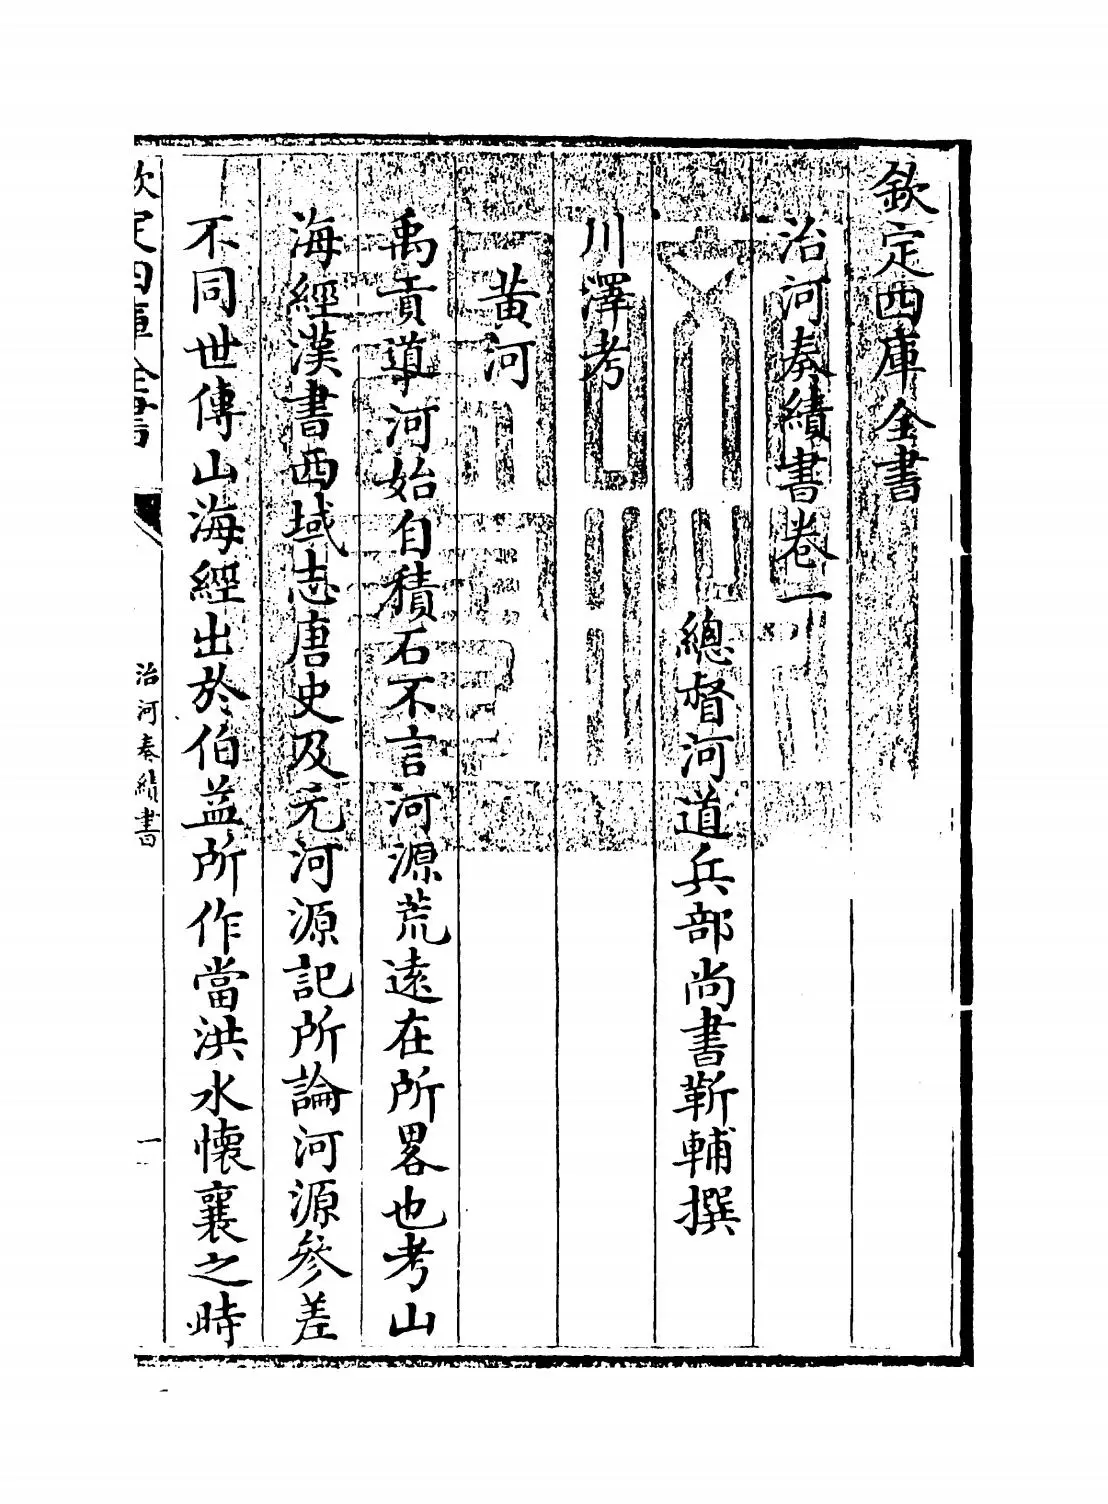 欽定四庫全書
治河奏績書卷一
總督河道兵部尚書靳輔撰
川澤考
黄河
禹貢導河始自積石不言河源荒逺在所畧也考山
海經漢書西域志唐史及元河源記所論河源參差
不同世傳山海經出於伯益所作當洪水懐襄之時
欽定四庫全書
治河奏績書
一